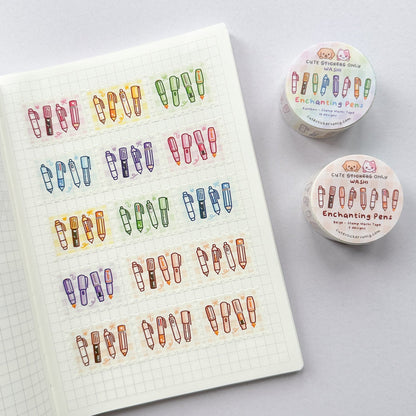 CUTE STICKERS ONLY
WASHI
Enchanting Pens
Rainbow - Stamp Washi Tape
CUTE STICKERS ONLY
WASHI
Enchanting Pens
Beige - Stamp Washi Tape